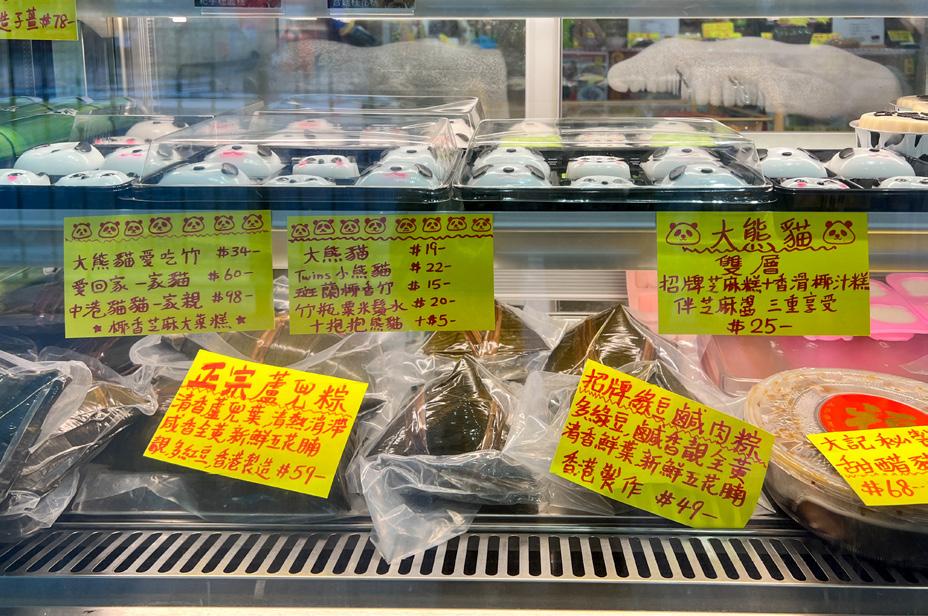 薑 $78-
大熊貓愛吃竹 $34-
愛回家一家貓 $60-
中港貓貓一家親 $98-
★椰香芝麻大菜糕★
大熊貓 $19-
Twins小熊貓 $22-
班蘭椰香竹 $15-
竹瓶粟米鬚水 $20-
十抱抱熊貓 +$5-
大熊貓
雙層
招牌芝麻糕+香滑椰汁糕
伴芝麻醬 三重享受
$25-
正宗蘆兜粽
清香蘆兜葉清熱消滯
咸香全黃新鮮五花腩
靚多紅豆香港製造 $59-
招牌綠豆鹹肉粽
多綠豆鹹香靚全黃
清香鮮葉新鮮五花腩
香港製作 $49-
大記秘製
甜醋豬
$68-